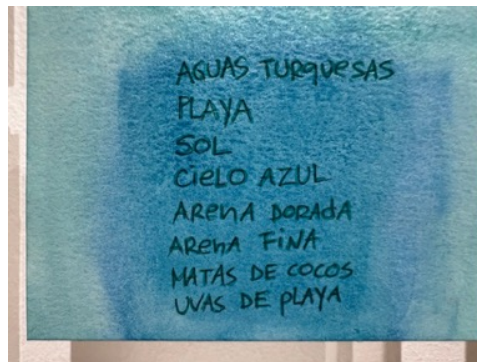 AGUAS TURQUESAS
PLAYA
SOL
CIELO AZUL
ARENA DORADA
ARENA FINA
MATAS DE COCOS
UVAS DE PLAYA